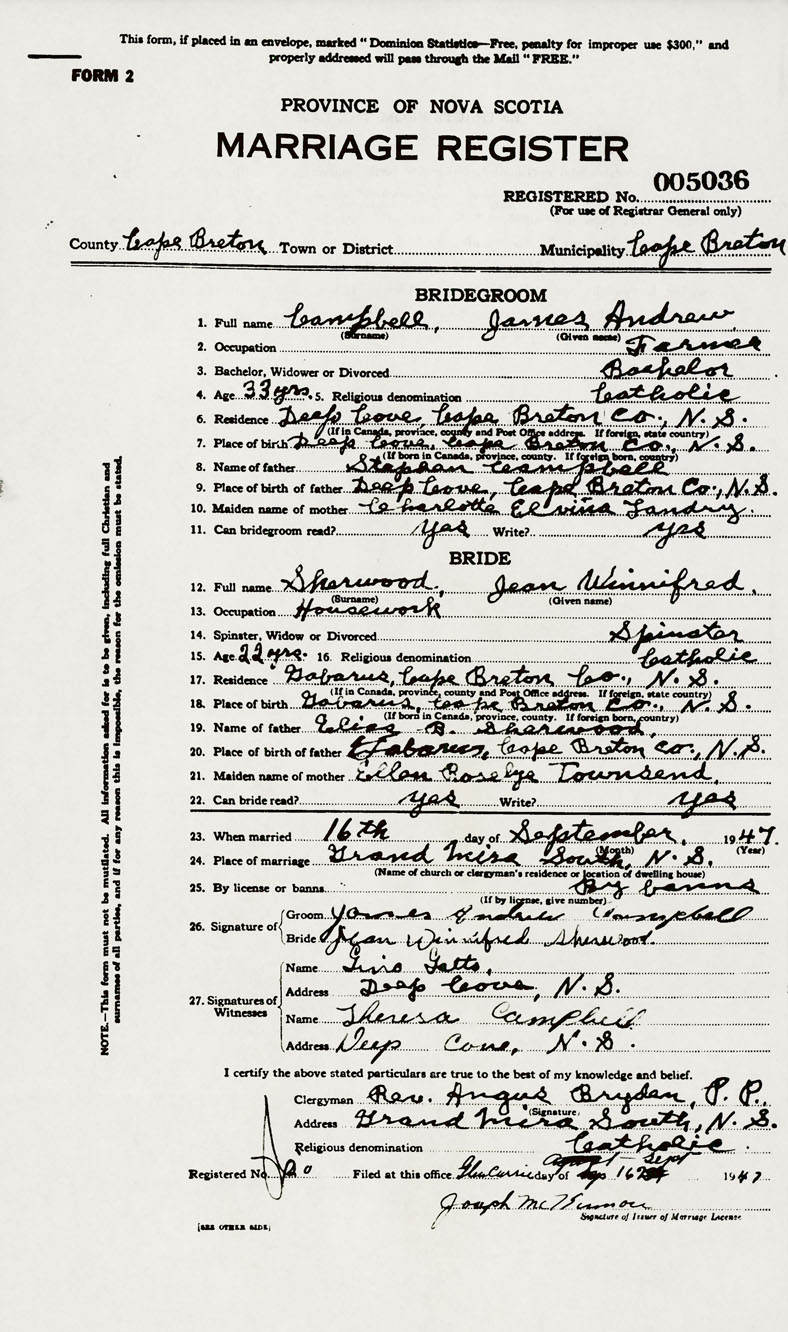 This form, if placed in an envelope, marked "Dominion Statistics—Free, penalty for improper use $300," and
properly addressed will pass through the Mail "FREE."
FORM 2
PROVINCE OF NOVA SCOTIA
MARRIAGE REGISTER
REGISTERED No. 005036
(For use of Registrar General only)
County Cape Breton Town or District Municipality Cape Breton
BRIDEGROOM
1. Full name Campbell, James Andrew
(Surname) (Given name)
2. Occupation Farmer
3. Bachelor, Widower or Divorced Bachelor
4. Age 33 yrs. 5. Religious denomination Catholic
6. Residence Deep Cove, Cape Breton Co., N. S.
(If in Canada, province, county and Post Office address. If foreign, state country)
7. Place of birth Deep Cove, Cape Breton Co., N. S.
(If born in Canada, province, county. If foreign born, country)
8. Name of father Stephen Campbell
9. Place of birth of father Deep Cove, Cape Breton Co., N. S.
10. Maiden name of mother Charlotte Elvina Landry.
11. Can bridegroom read? yes Write? yes
BRIDE
12. Full name Sherwood, Jean Winnifred,
(Surname) (Given name)
13. Occupation Housework
14. Spinster, Widow or Divorced Spinster
15. Age 22 yrs. 16. Religious denomination Catholic
17. Residence Gabarus, Cape Breton Co., N. S.
(If in Canada, province, county and Post Office address. If foreign, state country)
18. Place of birth Gabarus, Cape Breton Co., N. S.
(If born in Canada, province, county. If foreign born, country)
19. Name of father Elias B. Sherwood,
20. Place of birth of father Gabarus, Cape Breton Co., N. S.
21. Maiden name of mother Ellen Townsend,
22. Can bride read? yes Write? yes
23. When married 16th day of September, 1947.
(Month) (Year)
24. Place of marriage Grand Mira South, N. S.
(Name of church or clergyman's residence or location of dwelling house)
25. By license or banns By banns
(If by license, give number)
26. Signature of
Groom James Andrew Campbell
Bride Jean Winnifred Sherwood.
27. Signatures of Witnesses
Name
Address Deep Cove, N. S.
Name Theresa Campbell
Address Deep Cove, N. S.
I certify the above stated particulars are true to the best of my knowledge and belief.
Clergyman Rev. Angus Bryden, P. P.
(Signature)
Address Grand Mira South, N. S.
Religious denomination Catholic.
Registered No. 20 Filed at this office day of Sept 16 1947
Joseph
Signature of Issuer of Marriage License
[SEE OTHER SIDE]
NOTE.—This form must not be mutilated. All information asked for is to be given, including full Christian and
surnames of all parties, and if for any reason this is impossible, the reason for the omission must be stated.